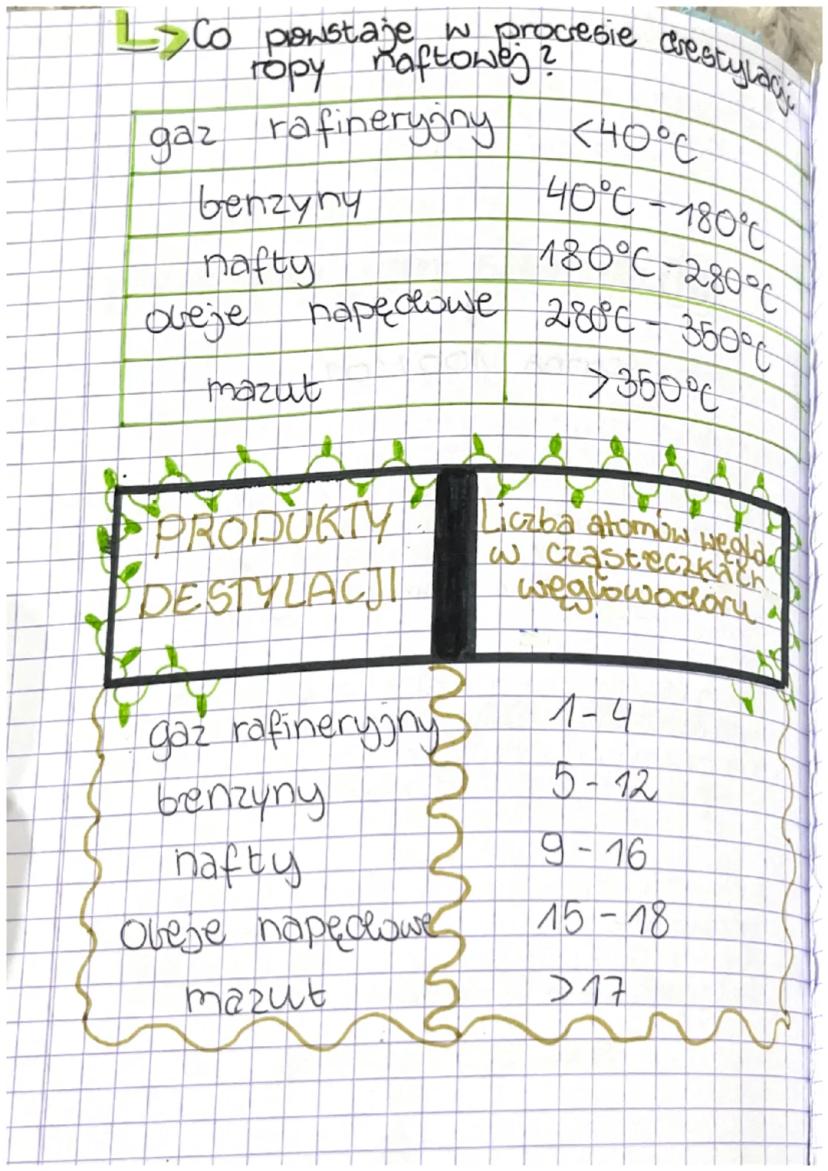 Co powstaje w procesie destylacji
ropy naftowej?
gaz rafineryjny <40°C
benzyny 40°C - 180°C
nafty 180°C - 280°C
oleje napędowe 280°C - 350°C
mazut >350°C
PRODUKTY
DESTYLACJI
Liczba atomów węgla
w cząsteczkach
węglowodoru
gaz rafineryjny 1-4
benzyny 5-12
nafty 9-16
Oleje napędowe 15-18
mazut >17